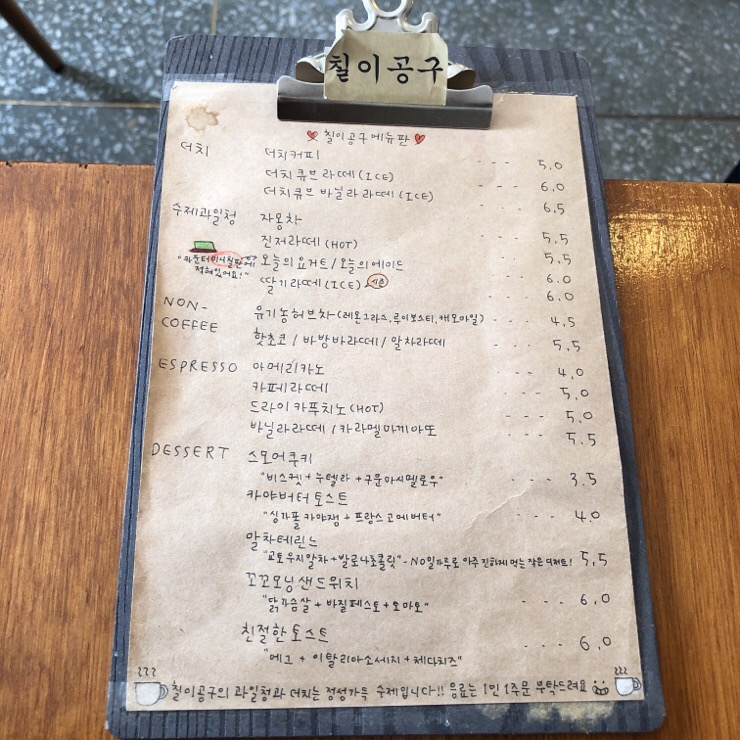 칠이공구
칠이공구 메뉴판
더치 더치커피 --- 5.0
더치큐브라떼(ICE) --- 6.0
더치큐브 바닐라라떼(ICE) --- 6.5
수제과일청 자몽차 --- 5.5
진저라떼(HOT) --- 5.5
"카운터 미니칠판에 적혀있어요!~ 오늘의요거트/오늘의에이드 --- 6.0
딸기라떼(ICE) 시즌 --- 6.0
NON-COFFEE 유기농허브차(레몬그라스,루이보스티,캐모마일) --- 4.5
핫초코/바방바라떼/말차라떼 --- 5.5
ESPRESSO 아메리카노 --- 4.0
카페라떼 --- 5.0
드라이카푸치노(HOT) --- 5.0
바닐라라떼/카라멜마끼아또 --- 5.5
DESSERT 스모어쿠키
"비스켓+누텔라+구운마시멜로우" --- 3.5
카야버터토스트
"싱가폴 카야쨈+프랑스고메버터" --- 4.0
말차테린느
"교토우지말차+발로나초콜릿"-NO밀가루로 아주 진하게 먹는 작은 디저트! 5.5
꼬꼬모닝샌드위치
"닭가슴살+바질페스토+토마토" --- 6.0
친절한토스트 --- 6.0
"에그+이탈리아소세지+체다치즈"
칠이공구의 과일청과 더치는 정성가득 수제입니다!! 음료는 1인 1주문 부탁드려요